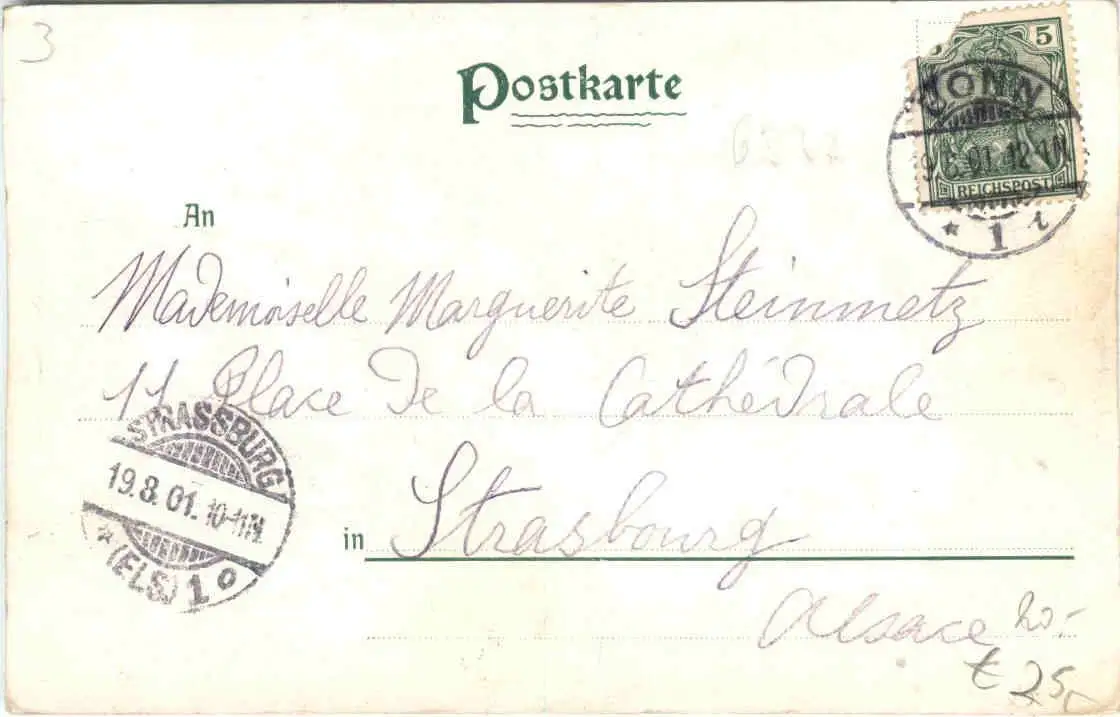 3
Postkarte
5
BONN
9.8.01. 12-1N
REICHSPOST
* 1 i
An
Mademoiselle Marguerite Steinmetz
11 Place de la Cathédrale
STRASSBURG
19.8.01. 10-11N.
* (ELS) 1 o
in Strasbourg
Alsace
20.-
€ 25,-